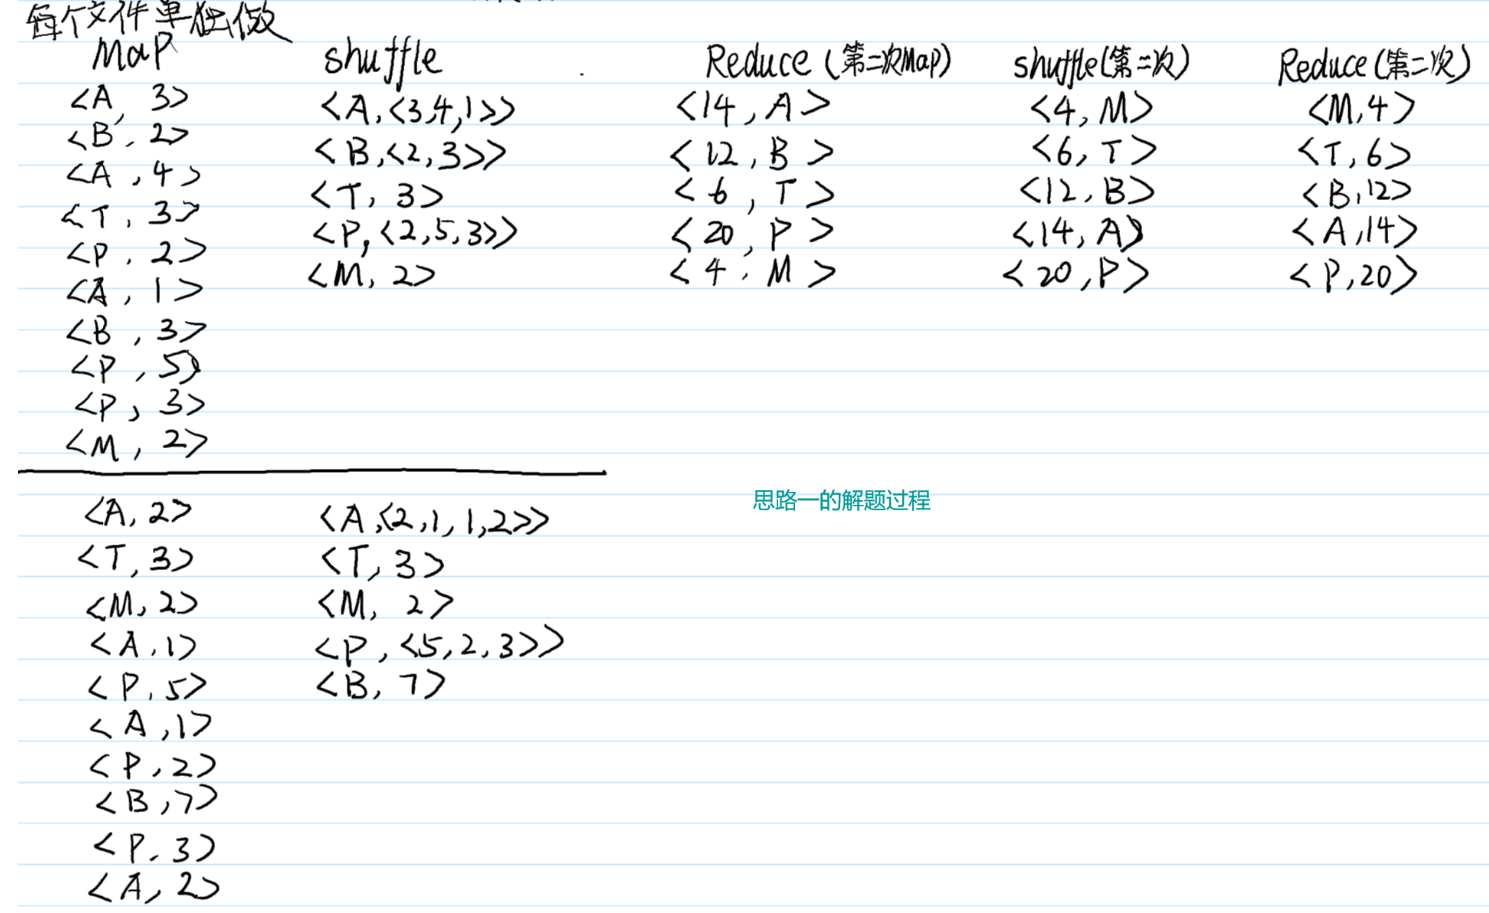 每个文件单独做
Map shuffle Reduce (第二次Map) shuffle(第二次) Reduce (第二次)
<A, 3> <A,<3,4,1>> <14, A> <4, M> <M,4>
<B, 2> <B,<2,3>> <12, B> <6, T> <T,6>
<A, 4> <T, 3> <6, T> <12, B> <B,12>
<T, 3> <P,<2,5,3>> <20, P> <14, A> <A,14>
<P, 2> <M, 2> <4, M> <20, P> <P,20>
<A, 1>
<B, 3>
<P, 5>
<P, 3>
<M, 2>
思路一的解题过程
<A, 2> <A,<2,1,1,2>>
<T, 3> <T, 3>
<M, 2> <M, 2>
<A, 1> <P,<5,2,3>>
<P, 5> <B, 7>
<A, 1>
<P, 2>
<B, 7>
<P, 3>
<A, 2>